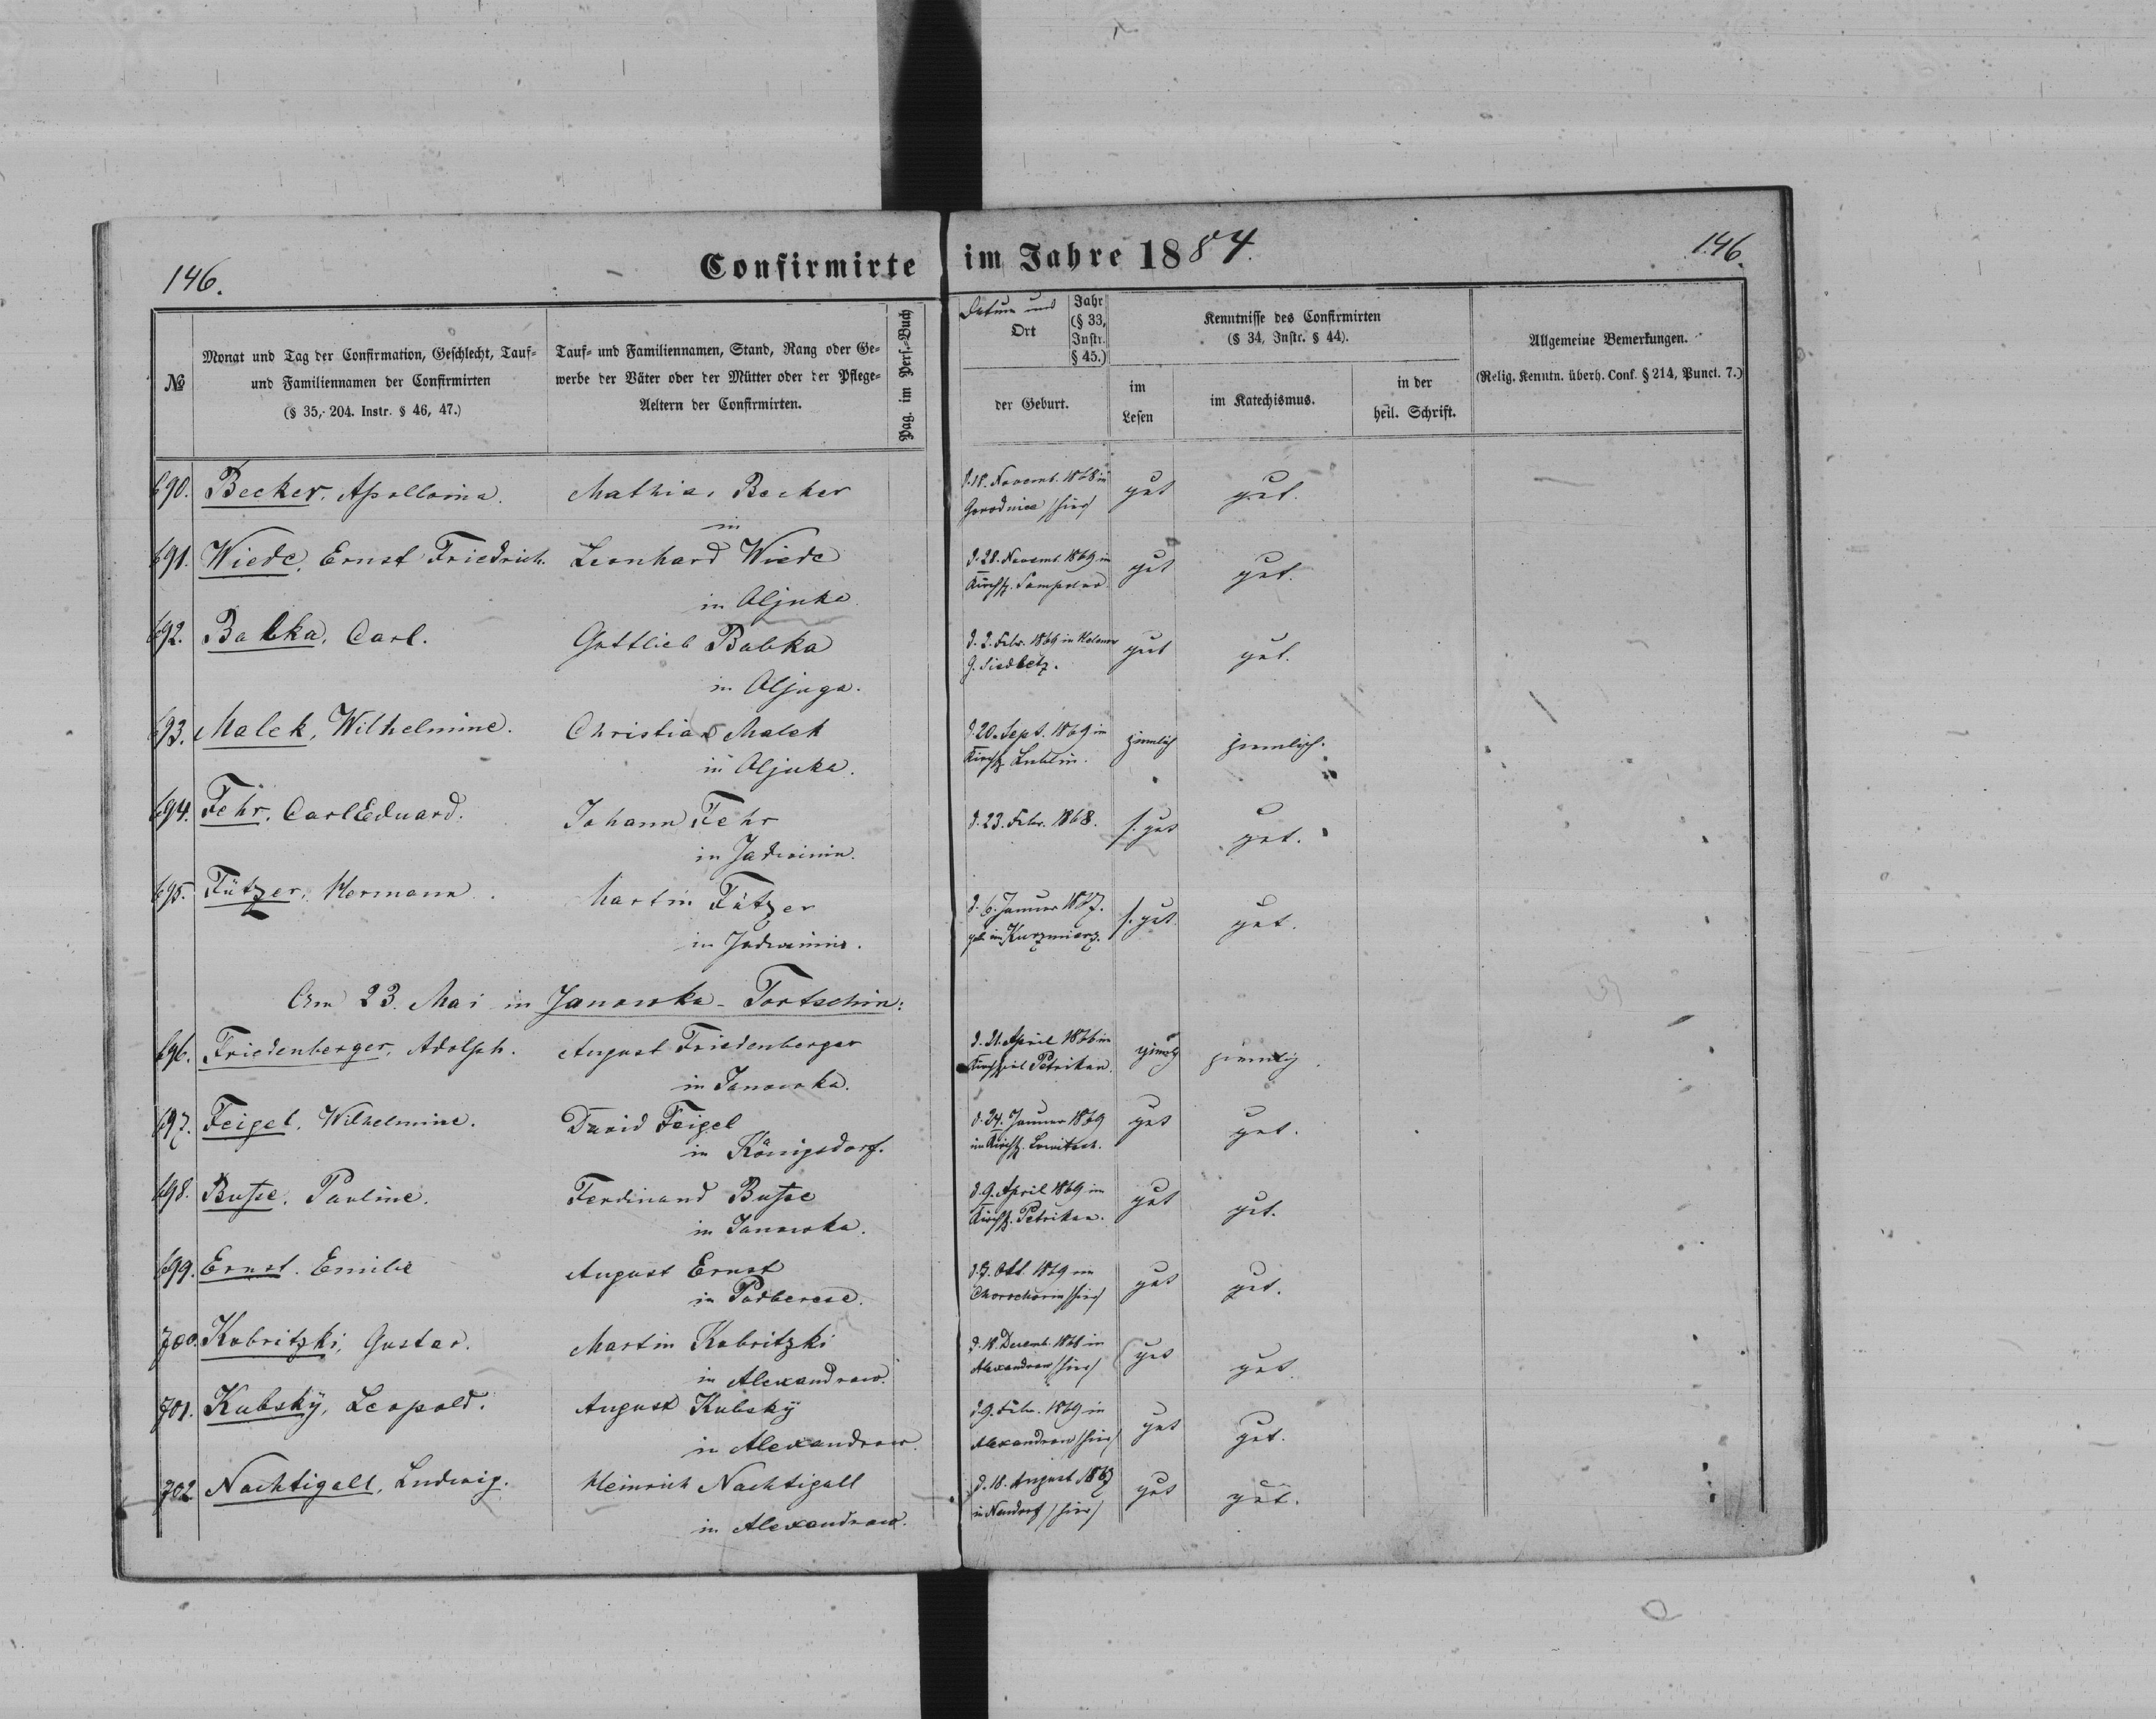 146.
Confirmirte im Jahre 1884.
146.
№
Monat und Tag der Confirmation, Geschlecht, Tauf-
und Familiennamen der Confirmirten
(§ 35, 204. Instr. § 46, 47.)
Tauf- und Familiennamen, Stand, Rang oder Ge-
werbe der Väter oder der Mütter oder der Pflege-
Aeltern der Confirmirten.
Pag. im Pers.-Buch
Datum und
Ort
Jahr
(§ 33,
Instr.
§ 45.)
der Geburt.
Kenntnisse des Confirmirten
(§ 34, Instr. § 44).
im
Lesen
im Katechismus.
in der
heil. Schrift.
Allgemeine Bemerkungen.
(Relig. Kenntn. überh. Conf. § 214, Punct. 7.)
690. Becker, Apollonia. Mathias Becker d. 18. Novemb. 1868 in gut gut.
in Gorodnica (hier)
691. Wiede, Ernst Friedrich. Leonhard Wiede d. 28. Novemb. 1869 in gut gut.
in Oljuka Kirchsp. Sompolno
692. Babka, Carl. Gottlieb Babka d. 2. Febr. 1869 in gut gut.
in Oljuga. G. Siedletz.
693. Malek, Wilhelmine. Christian Malek d. 20. Sept. 1869 in ziemlich ziemlich.
in Oljuka. Kirchsp. Lublin.
694. Fehr, Carl Eduard. Johann Fehr d. 23. Febr. 1868. s. gut gut.
in Jadwinin.
695. Fützer, Hermann. Martin Fützer d. 6. Januar 1867. s. gut gut.
in Jadwinin. geb. in Kuzmierz.
Am 23. Mai in Janowka-Tortschin:
696. Friedenberger, Adolph. August Friedenberger d. 21. April 1866 im ziemlich ziemlich.
in Janowka. Kirchspiel Petrikau.
697. Feigel, Wilhelmine. David Feigel d. 24. Januar 1869 gut gut.
in Königsdorf. im Kirchsp. Lowitsch.
698. Busse, Pauline. Ferdinand Busse d. 9. April 1869 im gut gut.
in Janowka. Kirchsp. Petrikau.
699. Ernst, Emilie August Ernst Okt. 1869 gut gut.
in Podberese. (hier)
700. Kobritzki, Gustav. Martin Kobritzki d. 18. Decemb. 1868 in gut gut.
in Alexandrow. Alexandrow (hier)
701. Kubsky, Leopold. August Kubsky d. 9. Febr. 1869 in gut gut.
in Alexandrow. Alexandrow (hier)
702. Nachtigall, Ludwig. Heinrich Nachtigall d. 18. August gut gut.
in Alexandrow. in Neudorf (hier)